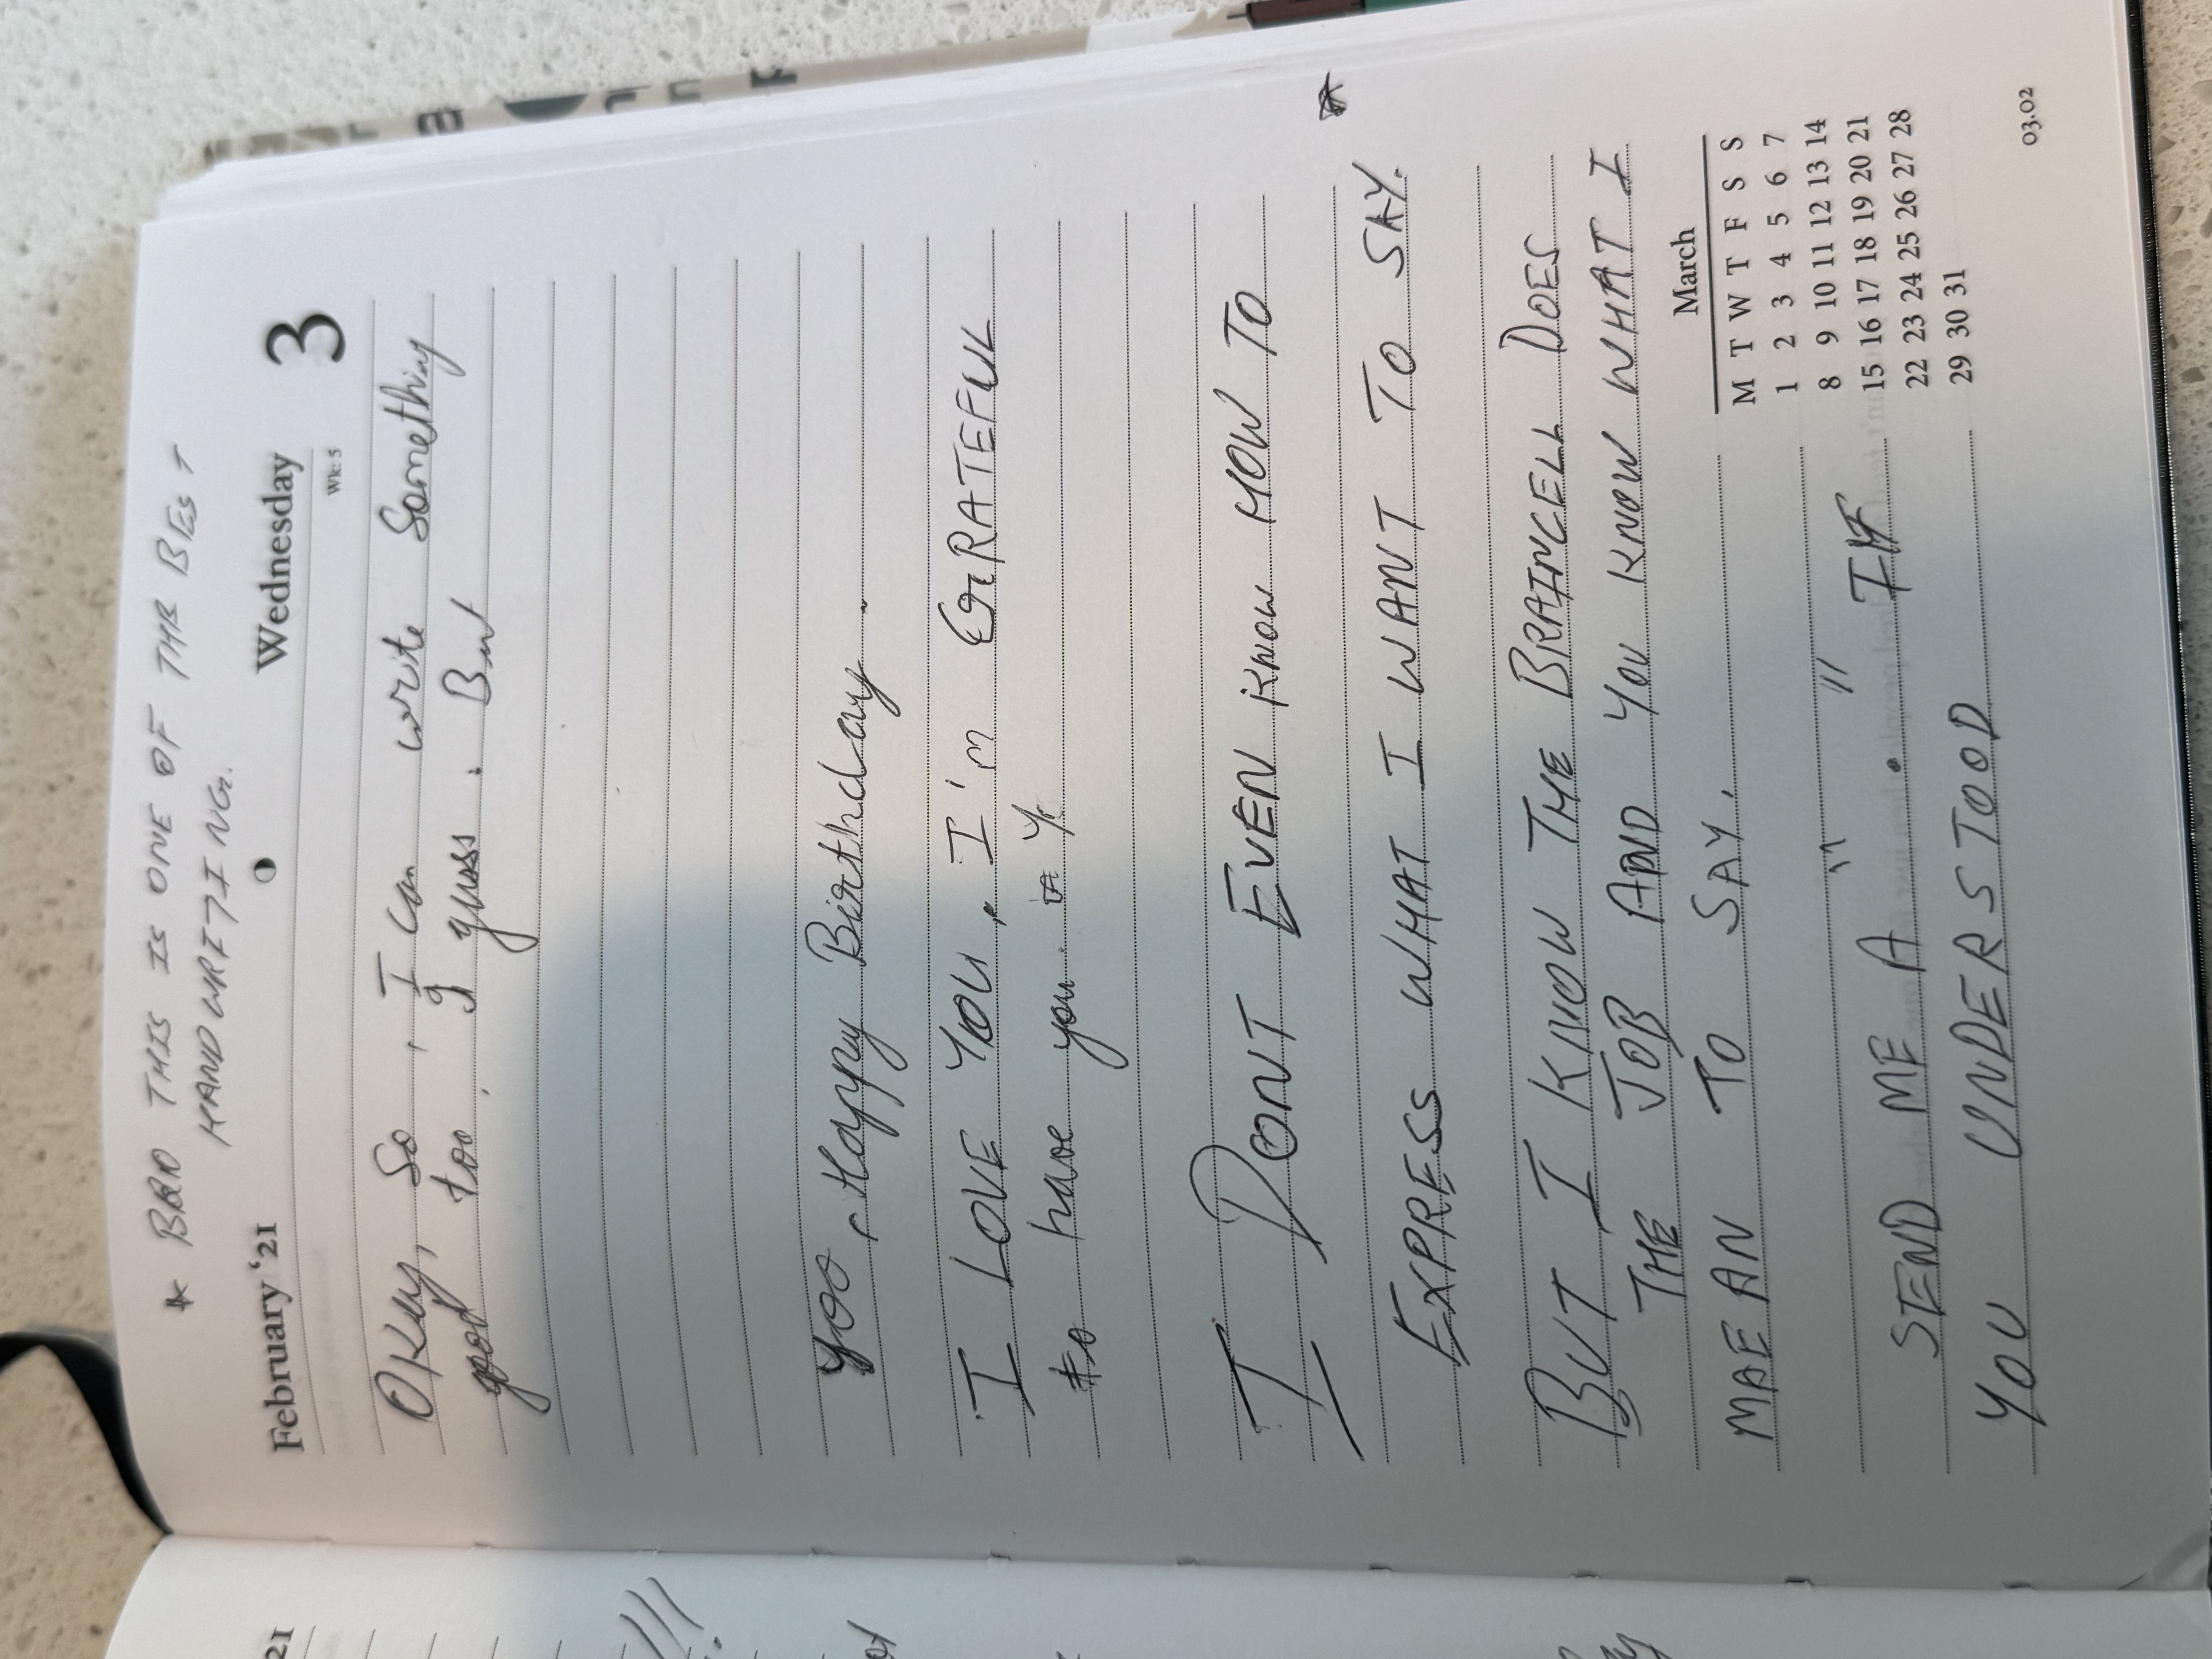 * BRO THIS IS ONE OF THE BEST
HANDWRITING.
21
February ‘21 Wednesday 3
Wk: 5
Okay, So , I can write Something
good too. I guess. But
yoo, Happy Birthday.
I LOVE YOU, I'm GRATEFUL
to have you.
I DONT EVEN KNOW HOW TO
EXPRESS WHAT I WANT TO SAY.
BUT I KNOW THE BRAINCELL DOES
THE JOB AND YOU KNOW WHAT I
MAEAN TO SAY.
SEND ME A " . " IF
YOU UNDERSTOOD
March
M T W T F S S
1 2 3 4 5 6 7
8 9 10 11 12 13 14
15 16 17 18 19 20 21
22 23 24 25 26 27 28
29 30 31
03.02